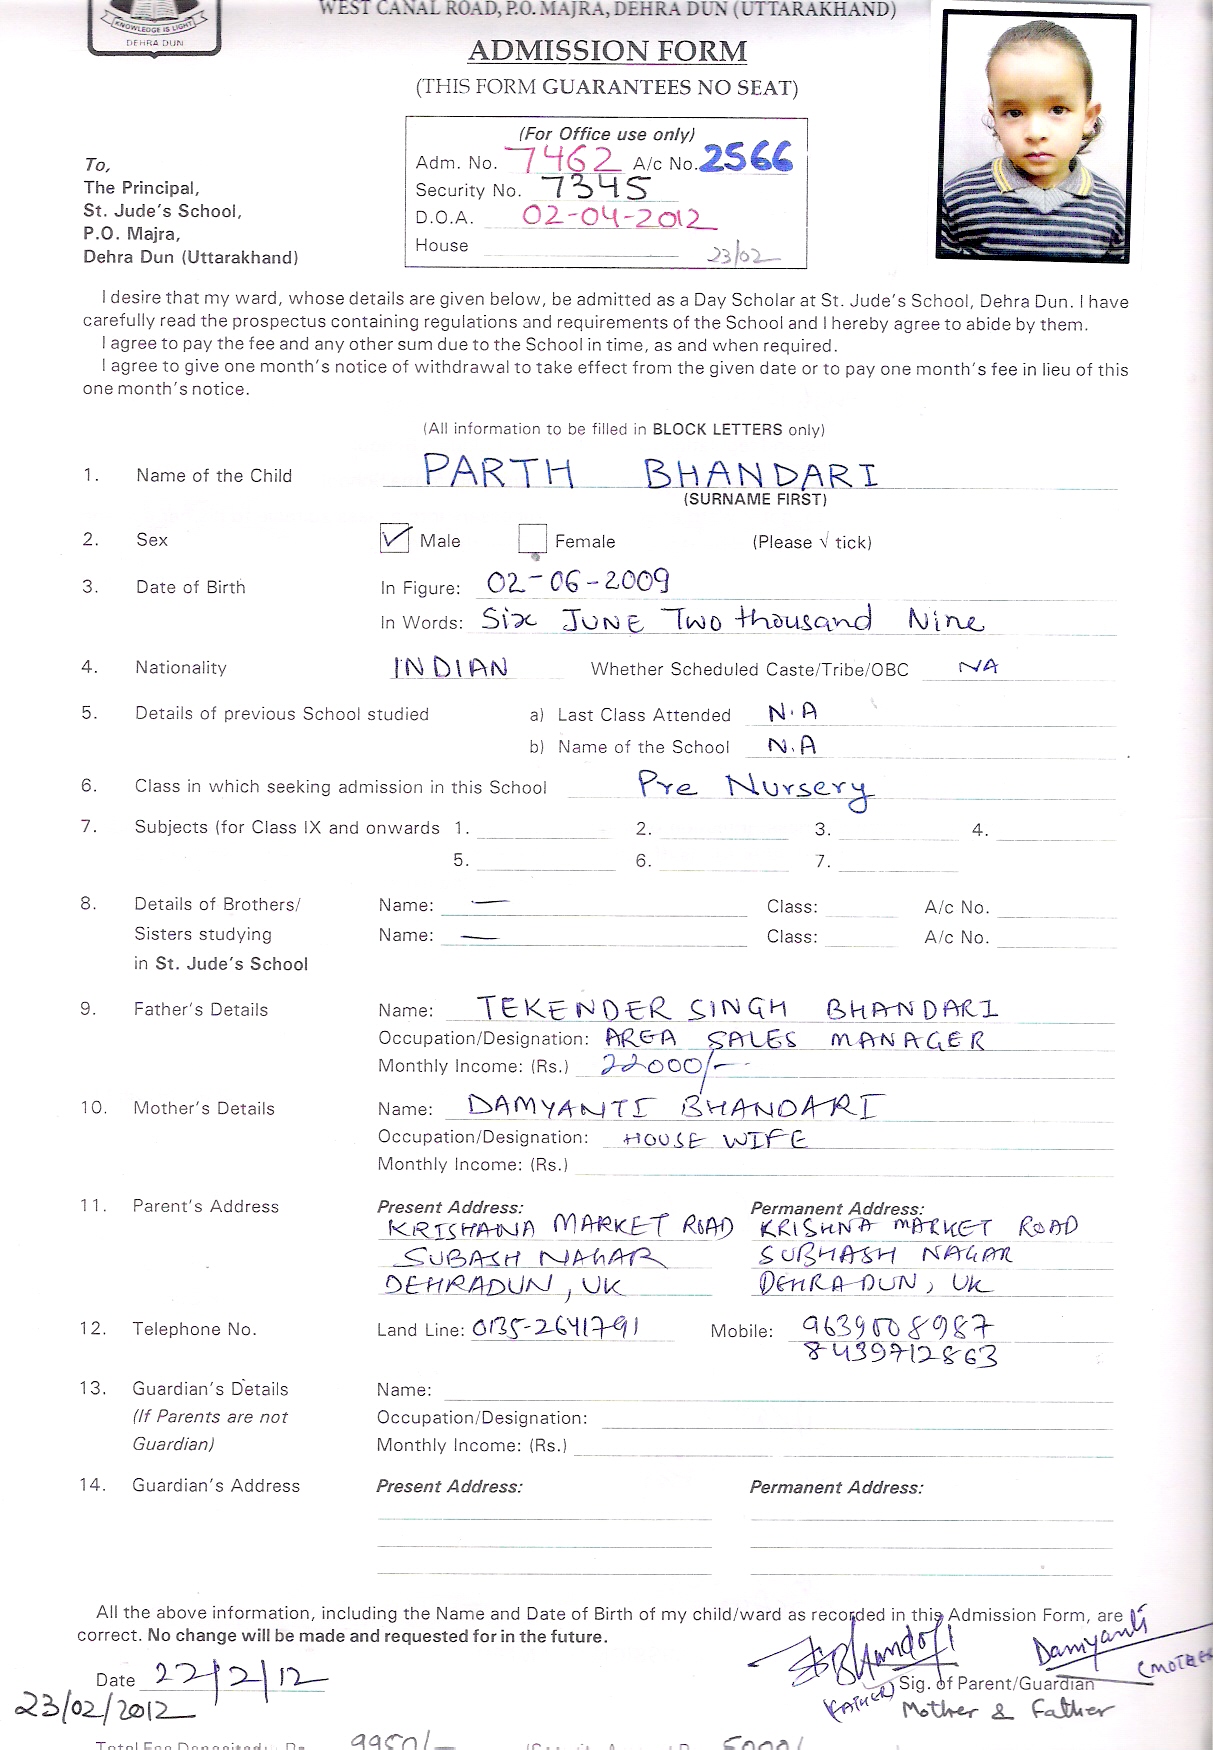 KNOWLEDGE IS LIGHT
DEHRA DUN
WEST CANAL ROAD, P.O. MAJRA, DEHRA DUN (UTTARAKHAND)
ADMISSION FORM
(THIS FORM GUARANTEES NO SEAT)
(For Office use only)
Adm. No. 7462 A/c No. 2566
Security No. 7345
D.O.A. 02-04-2012
House
23/02
To,
The Principal,
St. Jude's School,
P.O. Majra,
Dehra Dun (Uttarakhand)
I desire that my ward, whose details are given below, be admitted as a Day Scholar at St. Jude's School, Dehra Dun. I have
carefully read the prospectus containing regulations and requirements of the School and I hereby agree to abide by them.
I agree to pay the fee and any other sum due to the School in time, as and when required.
I agree to give one month's notice of withdrawal to take effect from the given date or to pay one month's fee in lieu of this
one month's notice.
(All information to be filled in BLOCK LETTERS only)
1. Name of the Child PARTH BHANDARI
(SURNAME FIRST)
2. Sex Male Female (Please √ tick)
3. Date of Birth In Figure: 02-06-2009
In Words: Six JUNE Two thousand Nine
4. Nationality INDIAN Whether Scheduled Caste/Tribe/OBC NA
5. Details of previous School studied a) Last Class Attended N.A
b) Name of the School N.A
6. Class in which seeking admission in this School Pre Nursery
7. Subjects (for Class IX and onwards 1. 2. 3. 4.
5. 6. 7.
8. Details of Brothers/ Name: — Class: A/c No.
Sisters studying Name: — Class: A/c No.
in St. Jude's School
9. Father's Details Name: TEKENDER SINGH BHANDARI
Occupation/Designation: AREA SALES MANAGER
Monthly Income: (Rs.) 22000/-
10. Mother's Details Name: DAMYANTI BHANDARI
Occupation/Designation: HOUSE WIFE
Monthly Income: (Rs.)
11. Parent's Address Present Address: Permanent Address:
KRISHANA MARKET ROAD KRISHNA MARKET ROAD
SUBASH NAGAR SUBHASH NAGAR
DEHRADUN, UK DEHRADUN, UK
12. Telephone No. Land Line: 0135-2641791 Mobile: 9639008987
8439712863
13. Guardian's Details Name:
(If Parents are not Occupation/Designation:
Guardian) Monthly Income: (Rs.)
14. Guardian's Address Present Address: Permanent Address:
All the above information, including the Name and Date of Birth of my child/ward as recorded in this Admission Form, are
correct. No change will be made and requested for in the future.
Bhandari Damyanti
Date 22/2/12 (FATHER) Sig. of Parent/Guardian (MOTHER
23/02/2012 Mother & Father
Total Fee Deposited: Rs 9950/- 5000/